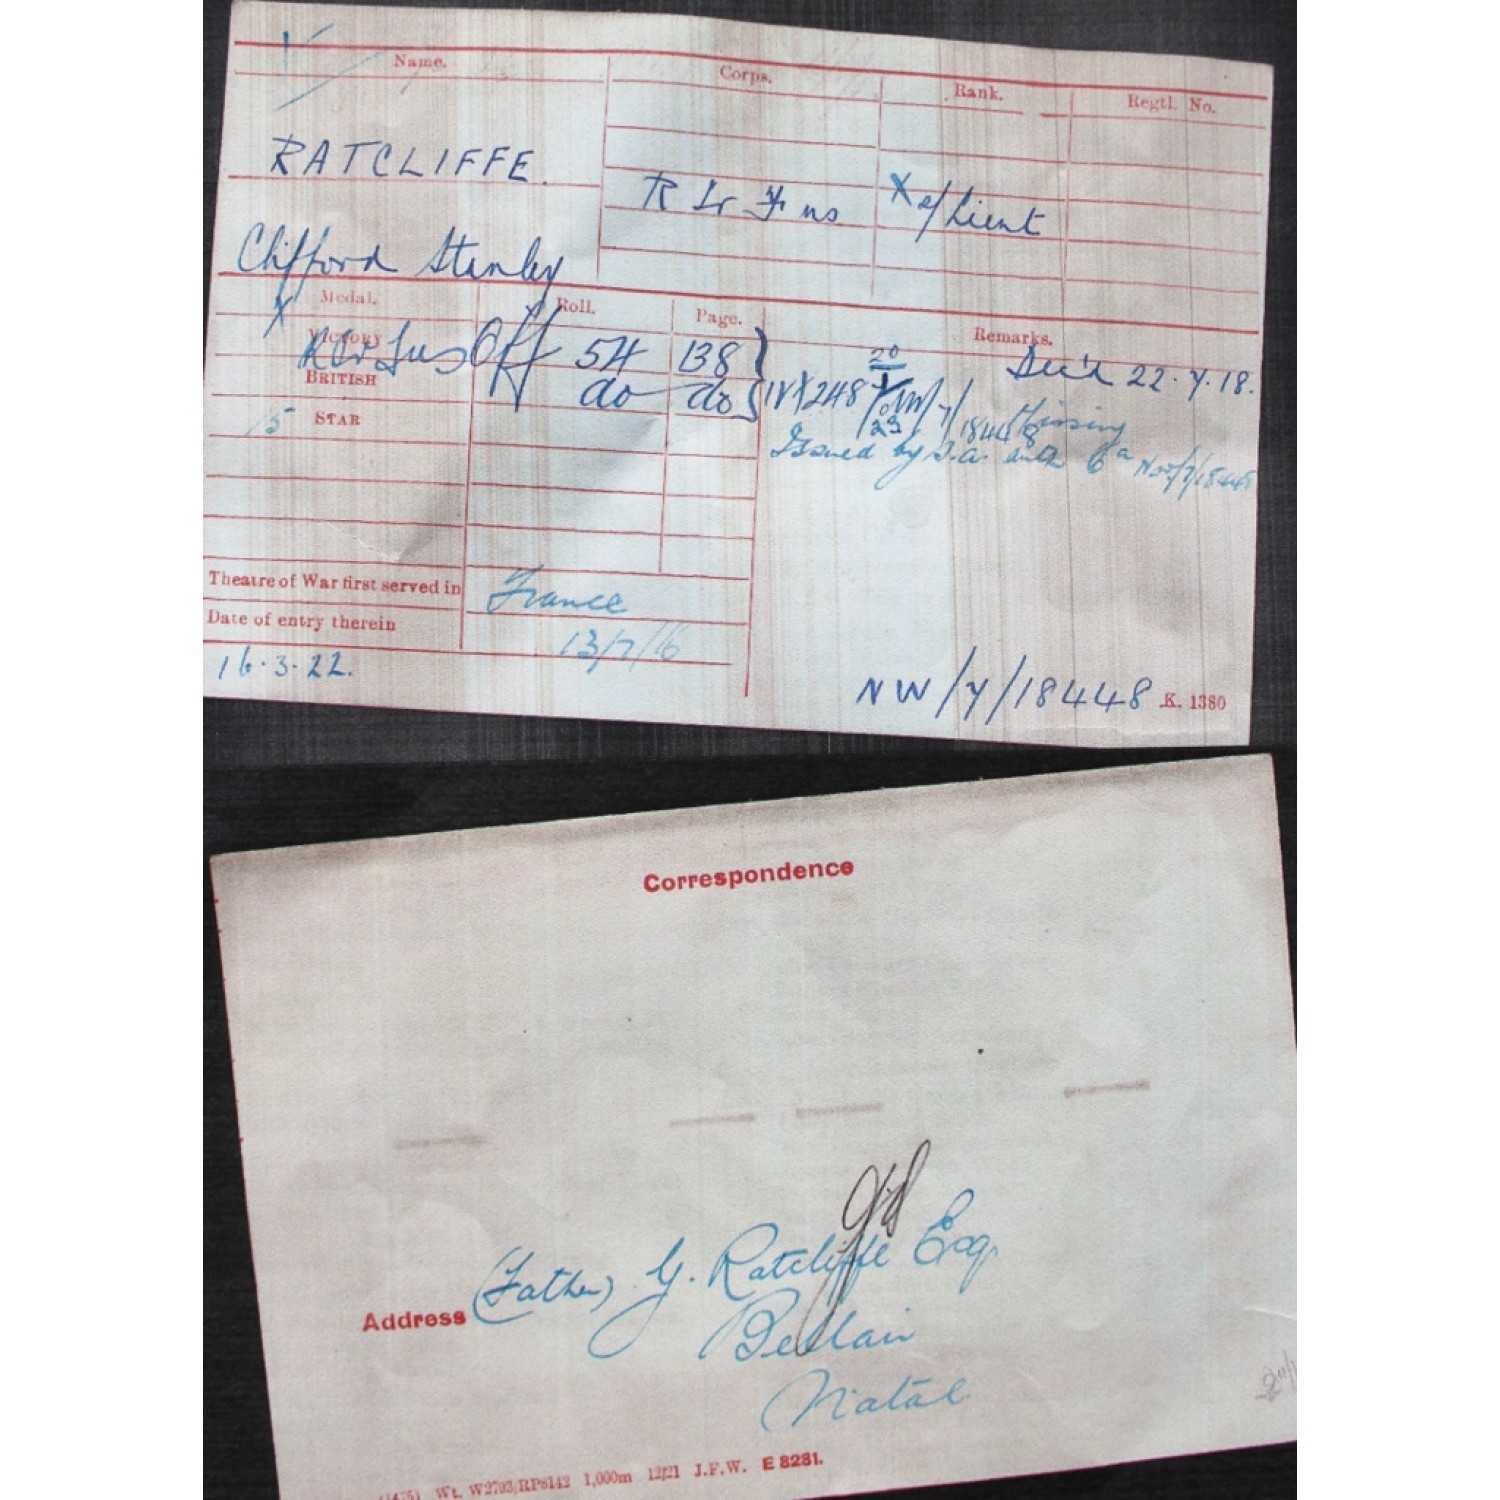 Name. Corps. Rank. Regtl. No.
RATCLIFFE.
R Ir Fus X 2/Lieut
Clifford Stanley
Medal. Roll. Page. Remarks.
X VICTORY R Ir Fus Off 54 138 Dec'd 22.7.18.
BRITISH do do IV X 248
15 STAR Missing
Issued by
Theatre of War first served in France
Date of entry therein 13/7/16
16.3.22.
NW/7/18448 K. 1380
Correspondence
Address (Father) G. Ratcliffe Esq.
Bellair
Natal
Wt. W2793/RP8142 1,000m 12/21 J.F.W. E 8281.